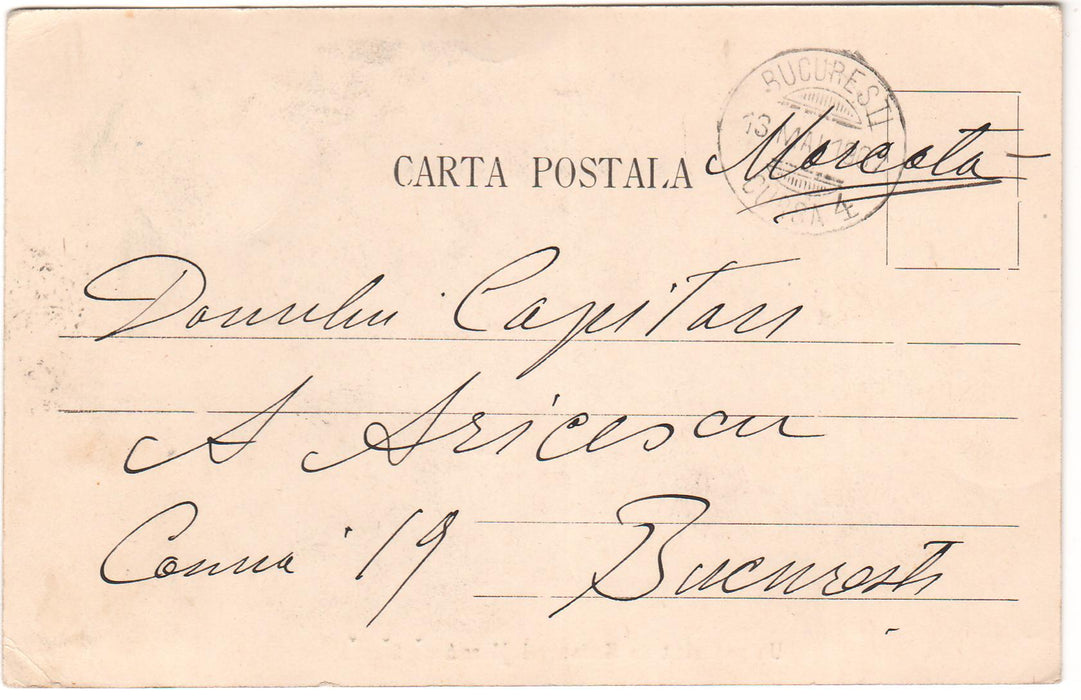 BUCURESTI
13 MAI
CURSA 4
CARTA POSTALA
Morcota
Domnului Capitan
A Aricescu
Comna 19 Bucuresti